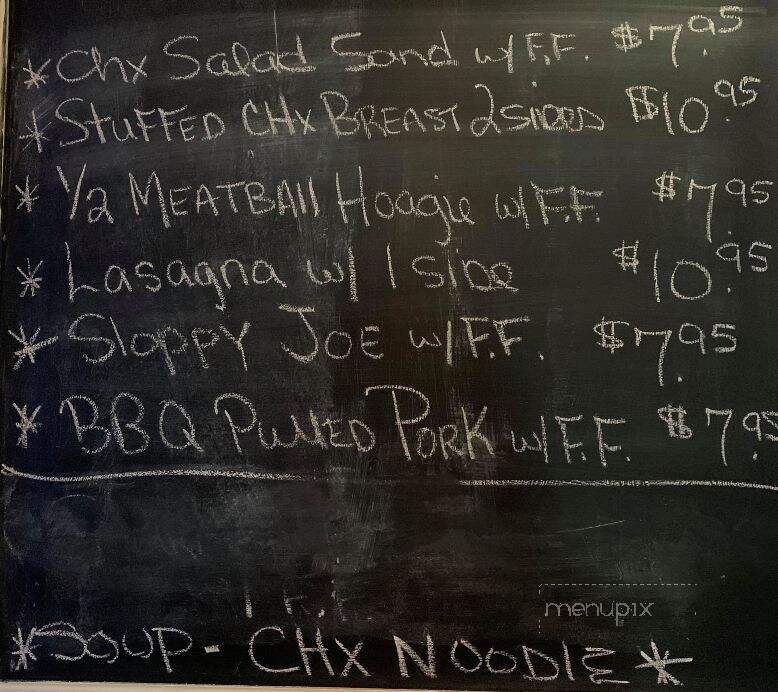 *Chx Salad Sand w/ F.F. $7.95
*STUFFED CHx BREAST 2 SIDES $10.95
* 1/2 MEATBAll Hoagie w/ F.F. $7.95
* Lasagna w/ 1 SIDE $10.95
* SLOPPY JOE w/ F.F. $7.95
* BBQ PullED PORK w/ F.F. $7.95
menupix
*SOUP - CHX NOODLE *